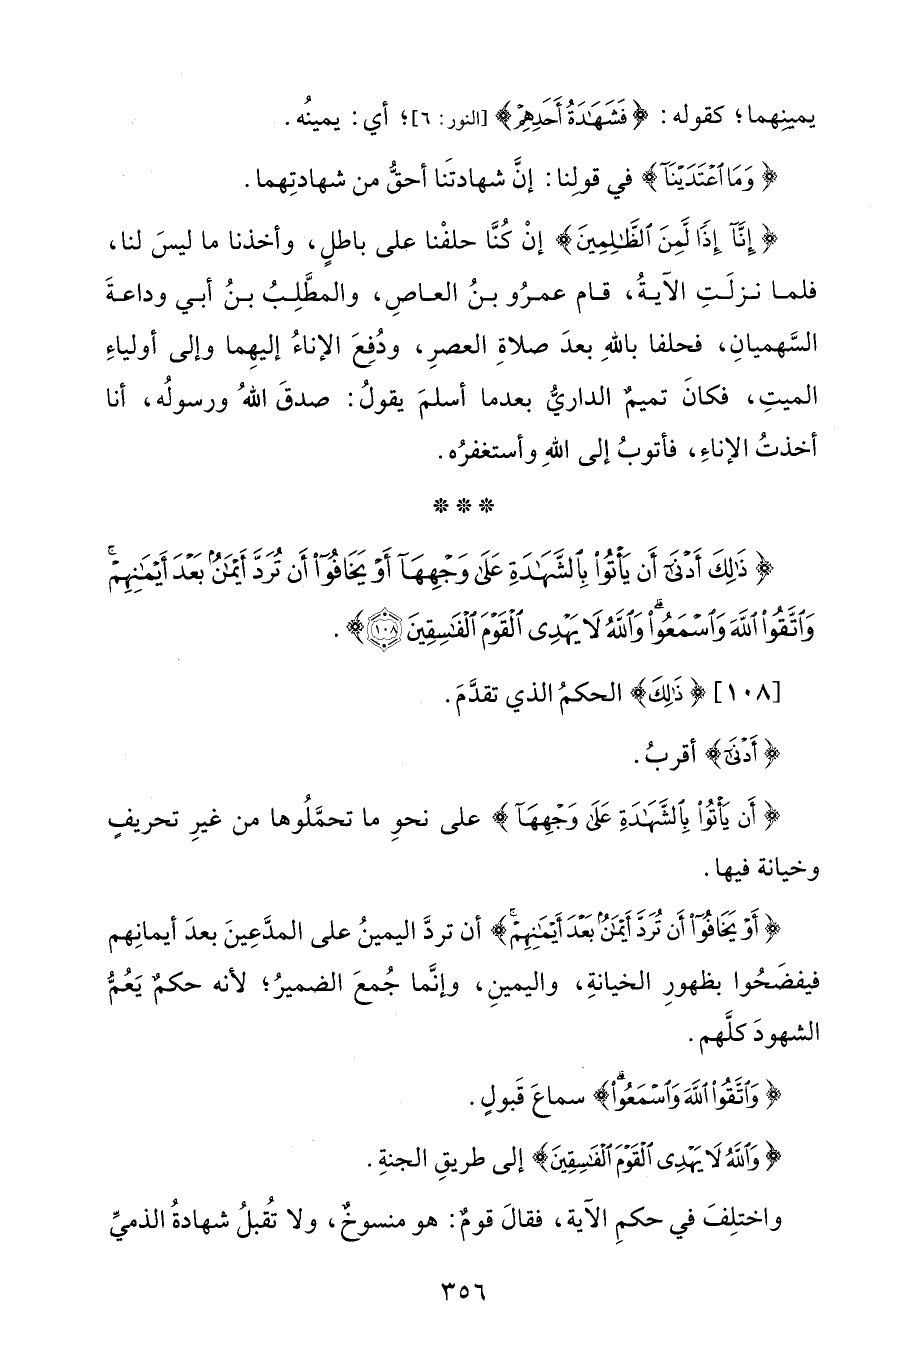 يمينِهما؛ كقوله: ﴿فَشَهَٰدَةُ أَحَدِهِمْ﴾ [النور: ٦]؛ أي: يمينُه.
﴿وَمَا ٱعْتَدَيْنَآ﴾ في قولِنا: إنَّ شهادتَنا أحقُّ من شهادتِهما.
﴿إِنَّآ إِذًا لَّمِنَ ٱلظَّٰلِمِينَ﴾ إنْ كُنَّا حلفْنا على باطلٍ، وأخذنا ما ليسَ لنا،
فلما نزلَتِ الآيةُ، قام عمرُو بنُ العاصِ، والمطَّلِبُ بنُ أبي وداعةَ
السَّهميانِ، فحلفا باللهِ بعدَ صلاةِ العصرِ، ودُفِعَ الإناءُ إليهِما وإلى أولياءِ
الميتِ، فكانَ تميمٌ الداريُّ بعدما أسلمَ يقولُ: صدقَ اللهُ ورسولُه، أنا
أخذتُ الإناءَ، فأتوبُ إلى اللهِ وأستغفرُه.
* * *
﴿ذَٰلِكَ أَدْنَىٰٓ أَن يَأْتُوا۟ بِٱلشَّهَٰدَةِ عَلَىٰ وَجْهِهَآ أَوْ يَخَافُوٓا۟ أَن تُرَدَّ أَيْمَٰنٌۢ بَعْدَ أَيْمَٰنِهِمْ ۚ
وَٱتَّقُوا۟ ٱللَّهَ وَٱسْمَعُوا۟ ۗ وَٱللَّهُ لَا يَهْدِى ٱلْقَوْمَ ٱلْفَٰسِقِينَ ١٠٨﴾.
[١٠٨] ﴿ذَٰلِكَ﴾ الحكمُ الذي تقدَّمَ.
﴿أَدْنَىٰٓ﴾ أقربُ.
﴿أَن يَأْتُوا۟ بِٱلشَّهَٰدَةِ عَلَىٰ وَجْهِهَآ﴾ على نحوِ ما تحمَّلُوها من غيرِ تحريفٍ
وخيانة فيها.
﴿أَوْ يَخَافُوٓا۟ أَن تُرَدَّ أَيْمَٰنٌۢ بَعْدَ أَيْمَٰنِهِمْ ۚ﴾ أن تردَّ اليمينُ على المدَّعِينَ بعدَ أيمانِهم
فيفضَحُوا بظهورِ الخيانةِ، واليمينِ، وإنَّما جُمعَ الضميرُ؛ لأنه حكمٌ يَعُمُّ
الشهودَ كلَّهم.
﴿وَٱتَّقُوا۟ ٱللَّهَ وَٱسْمَعُوا۟ ۗ﴾ سماعَ قَبولٍ.
﴿وَٱللَّهُ لَا يَهْدِى ٱلْقَوْمَ ٱلْفَٰسِقِينَ﴾ إلى طريقِ الجنةِ.
واختلِفَ في حكمِ الآية، فقالَ قومٌ: هو منسوخٌ، ولا تُقبلُ شهادةُ الذميِّ
٣٥٦